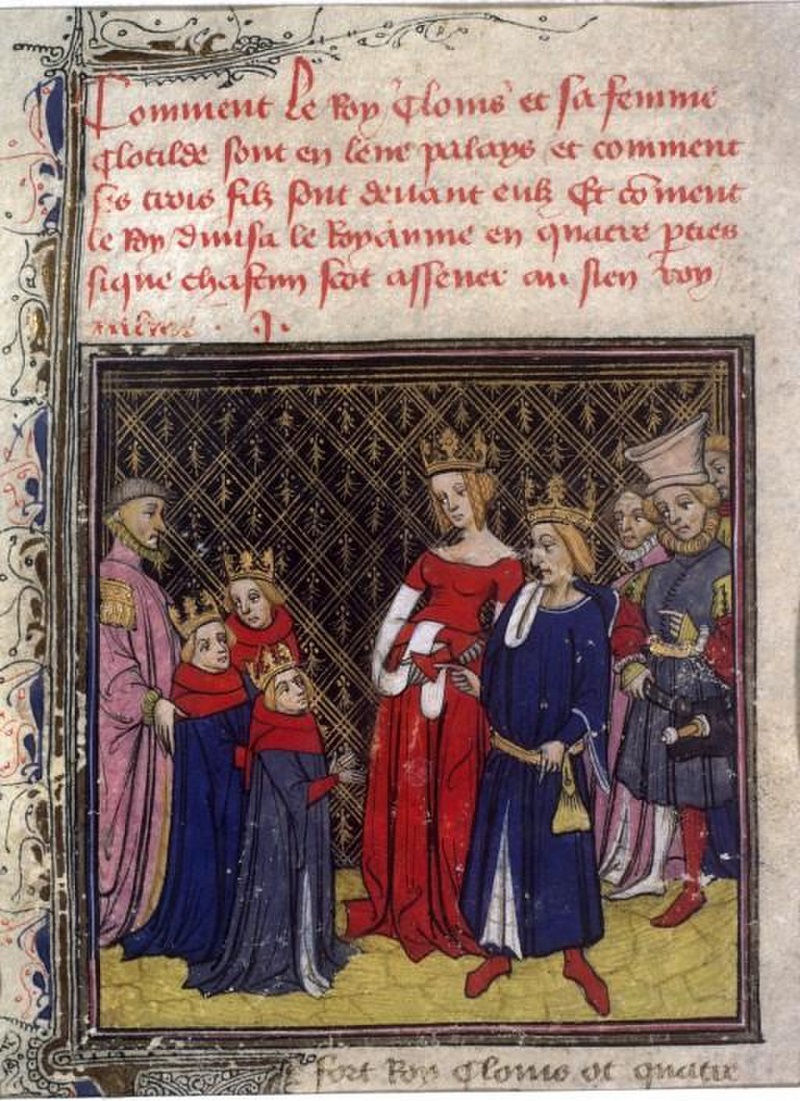 Comment Le Roy Clouis et sa femme
Clotilde sont en leur palays et comment
ses trois filz sont deuant eulz Et cõment
le Roy diuisa le Royaume en quatre pties
sique chascun scot assener au sien roy
aulme . J.
fort Roy Clouis ot quatre